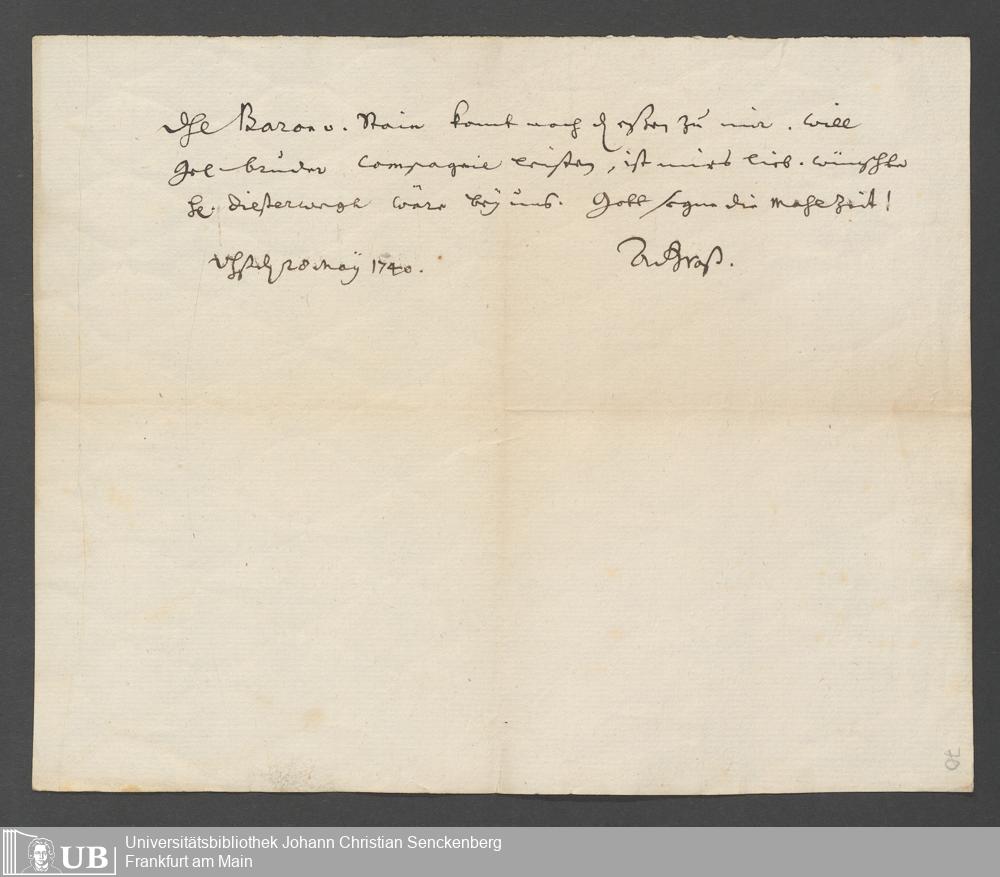 Baron v. Stain komt nach d. eßen zu mir. Will
Gel. bruder Compagnie leisten, ist mirs lieb. wünschte
He. Diesterwegh wäre beÿ uns. Gott segne die Mahlzeit!
28 Maÿ 1740.
AGroß.
70
UB
Universitätsbibliothek Johann Christian Senckenberg
Frankfurt am Main